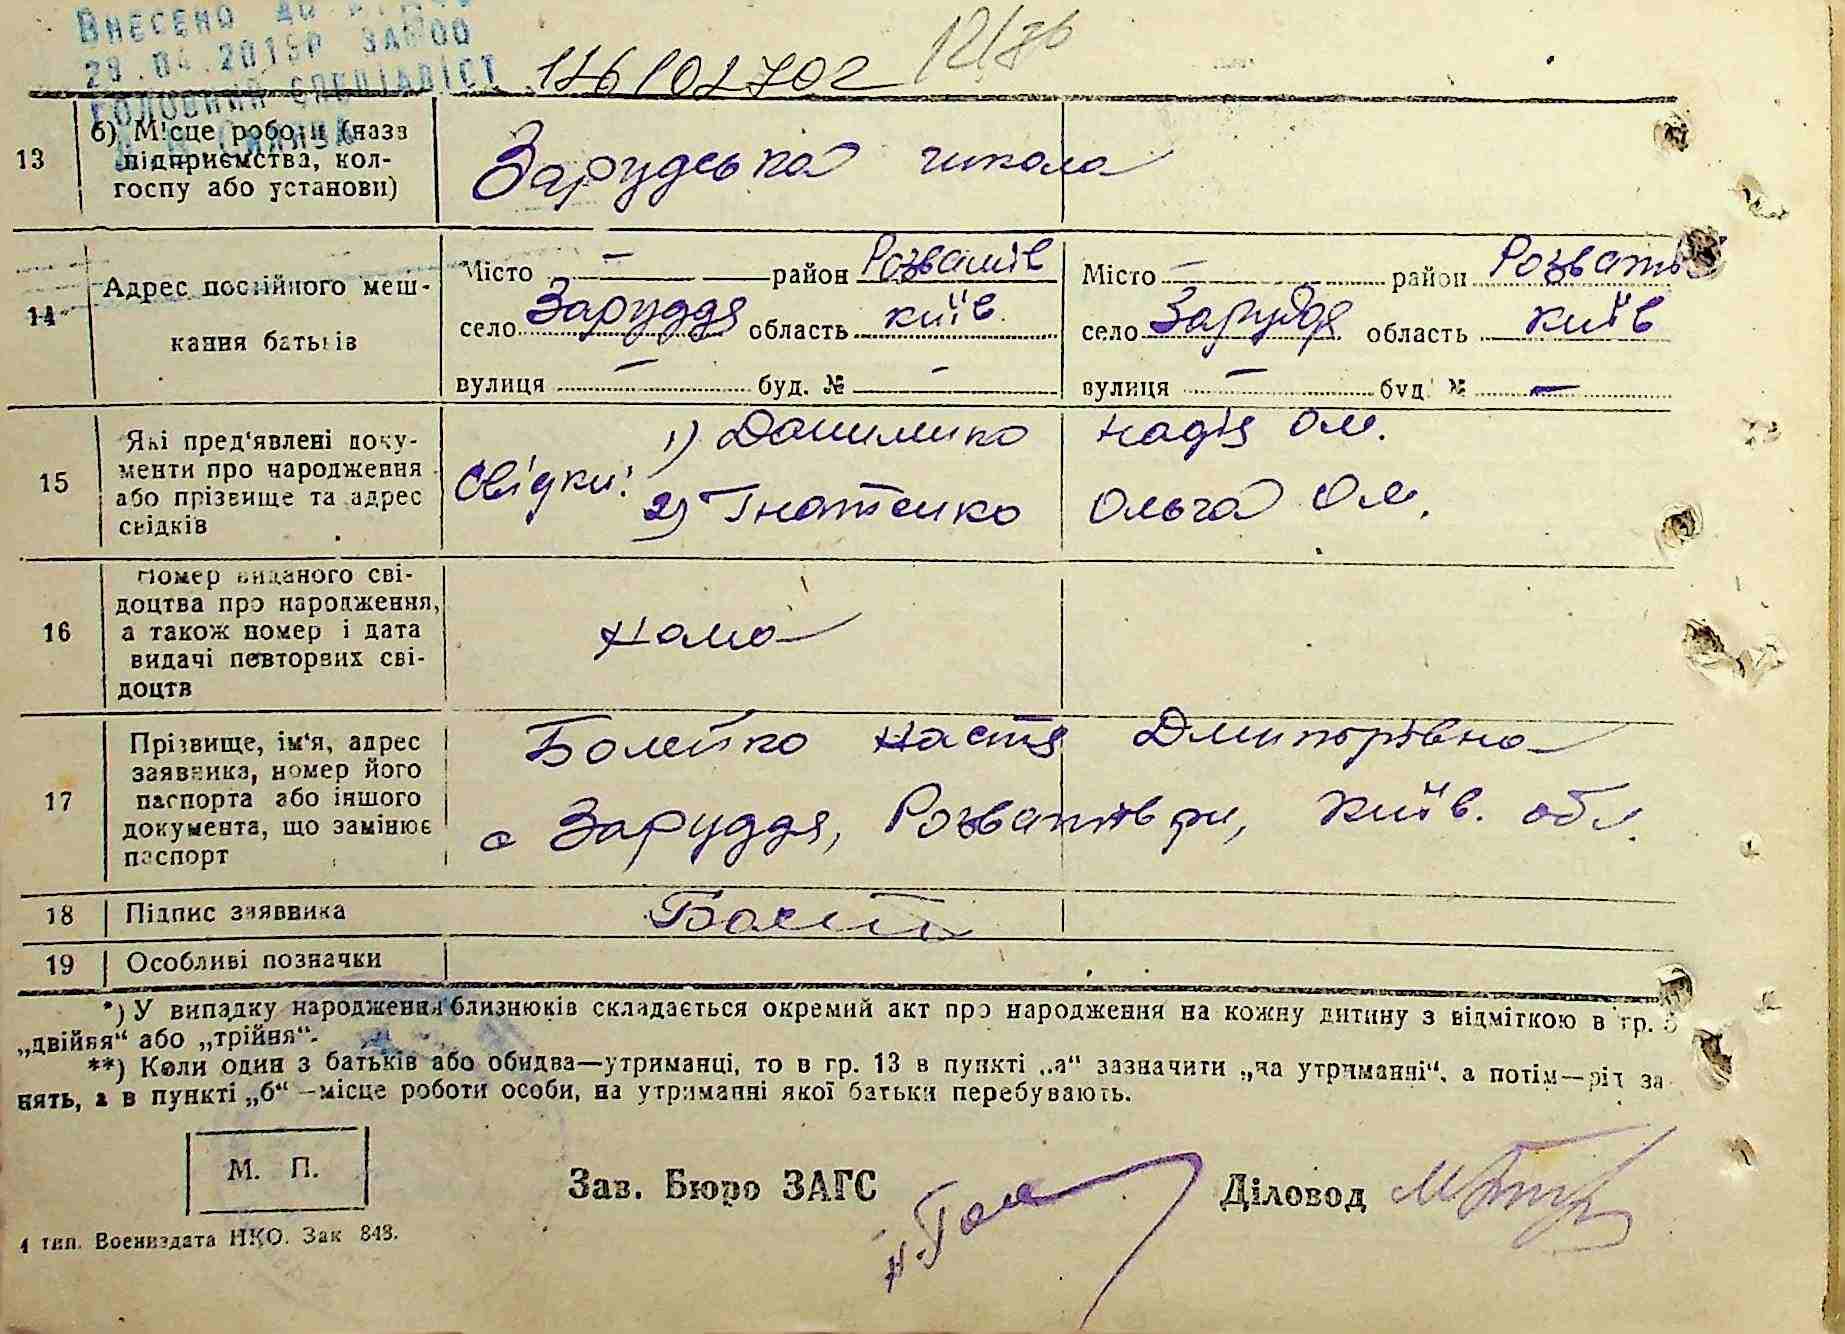 Внесено до
29.04.2015р
Головний спеціаліст
126102702 12/86
13 б) Місце роботи (назв підприємства, колгоспу або установи) Зарудська школа
14 Адрес постійного мешкання батьків
Місто — район Розважів Місто — район Розваж
село Заруддя область Київ село Заруддя область Київ
вулиця — буд. № — вулиця — буд. № —
15 Які пред'явлені документи про народження або прізвище та адрес свідків
Свідки: 1) Данилико Надія Ол.
2) Ігнатенко Ольга Ол.
16 Номер виданого свідоцтва про народження, а також номер і дата видачі повторних свідоцтв
17 Прізвище, ім'я, адрес заявника, номер його паспорта або іншого документа, що замінює паспорт
Болейко Настя Дмитрівна
с Заруддя, Розважів рн, Київ. обл.
18 Підпис заявника
19 Особливі позначки
*) У випадку народження близнюків складається окремий акт про народження на кожну дитину з відміткою в гр. 5
„двійня“ або „трійня“.
**) Коли один з батьків або обидва—утриманці, то в гр. 13 в пункті „а“ зазначити „на утриманні“, а потім—рід за
нять, а в пункті „б“—місце роботи особи, на утриманні якої батьки перебувають.
М. П.
Зав. Бюро ЗАГС Діловод
4 тип. Воениздата НКО. Зак 848.